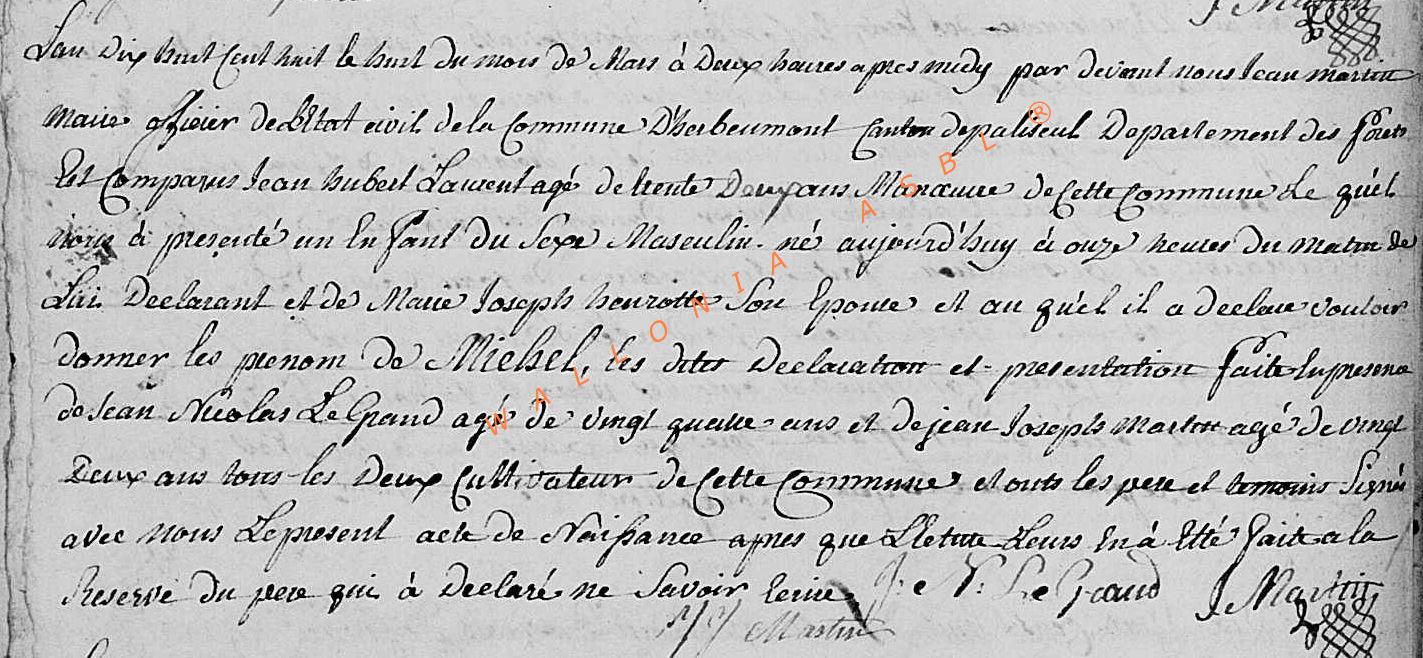 J Martin
L'an Dix huit Cent huit le huit du mois de Mars à Deux heures apres midy par devant nous Jean martin
Maire officier de L'Etat civil de la Commune D'herbeumont Canton de paliseul Departement des forets
Est Comparus Jean hubert Laurent agé de trente Deux ans Manœuvre de Cette Commune Le quel
nous à presenté un Enfant du Sexe Masculin né aujourd'huy à onze heures du matin de
Lui Declarant et de Marie Joseph henrotte Son Epouse et au quel il a declaré vouloir
donner les prenom de Michel, les dites Declaration et presentation faite En presence
de Jean Nicolas Le Grand agé de vingt quatre ans et de jean Joseph Martin agé de vingt
Deux ans tous les Deux Cultivateur de Cette Commune et onts les pere et temoins Signé
avec nous Le present acte de Naissance apres que Lecture Leurs En à Etté faite a la
Reserve du pere qui à Declaré ne Savoir Ecrire J: N: Le Grand J Martin
JJ Martin
WALLONIA ASBL ®